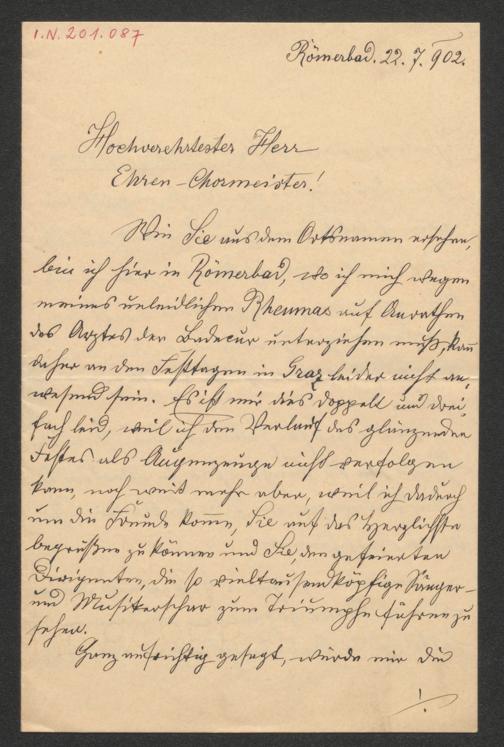 I.N. 201.087
Römerbad. 22. 7. 902.
Hochverehrtester Herr
Ehren-Chormeister!
Wie Sie aus dem Ortsnamen ersehen,
bin ich hier in Römerbad, wo ich mich wegen
meines unleidlichen Rheumas auf Anrathen
des Arztes der Badecur unterziehen muß, kann
daher an den Festtagen in Graz leider nicht an-
wesend sein. Es ist mir dies doppelt und drei-
fach leid, weil ich den Verlauf des glänzenden
Festes als Augenzeuge nicht verfolgen
kann, noch weit mehr aber, weil ich dadurch
um die Freude komme, Sie auf das Herzlichste
begrüßen zu können und Sie, den gefeierten
Dirigenten, die so vieltausendköpfige Sänger-
und Musikerschar zum Triumphe führen zu
sehen.
Ganz aufrichtig gesagt, würde mir die